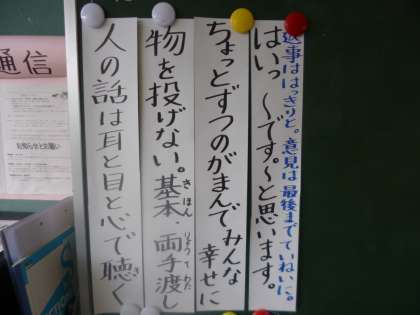 返事ははっきりと。意見は最後までていねいに。
はいっ ～です。～と思います。
ちょっとずつのがまんでみんな幸せに
物を投げない。基本 両手渡し
きほん りょうてわた
人の話は耳と目と心で聴く
通信
お知らせとお願い